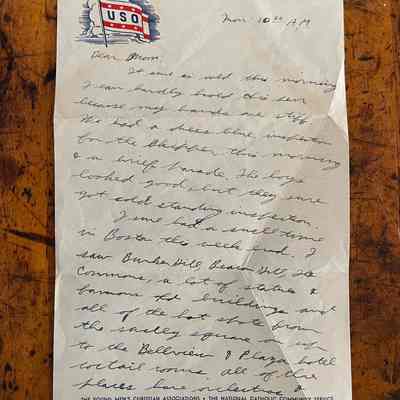 USO
Mon. 10:30 AM
Dear Mom:
It sure is cold this morning
I can hardly hold this pen
because my hands are stiff
We had a dress blue inspection
for the Skipper this morning
& a brief parade. The boys
looked good but they sure
got cold standing inspection.
I sure had a swell time
in Boston this week end. I
saw Bunker Hill, Beacon Hill, the
Commons, a lot of statues &
famous old buildings and
all of the hot spots from
the square up
to the Bellview & Plaza hotel
cocktail rooms all of the
places have orchestras &
THE YOUNG MEN'S CHRISTIAN ASSOCIATIONS • THE NATIONAL CATHOLIC COMMUNITY SERVICE